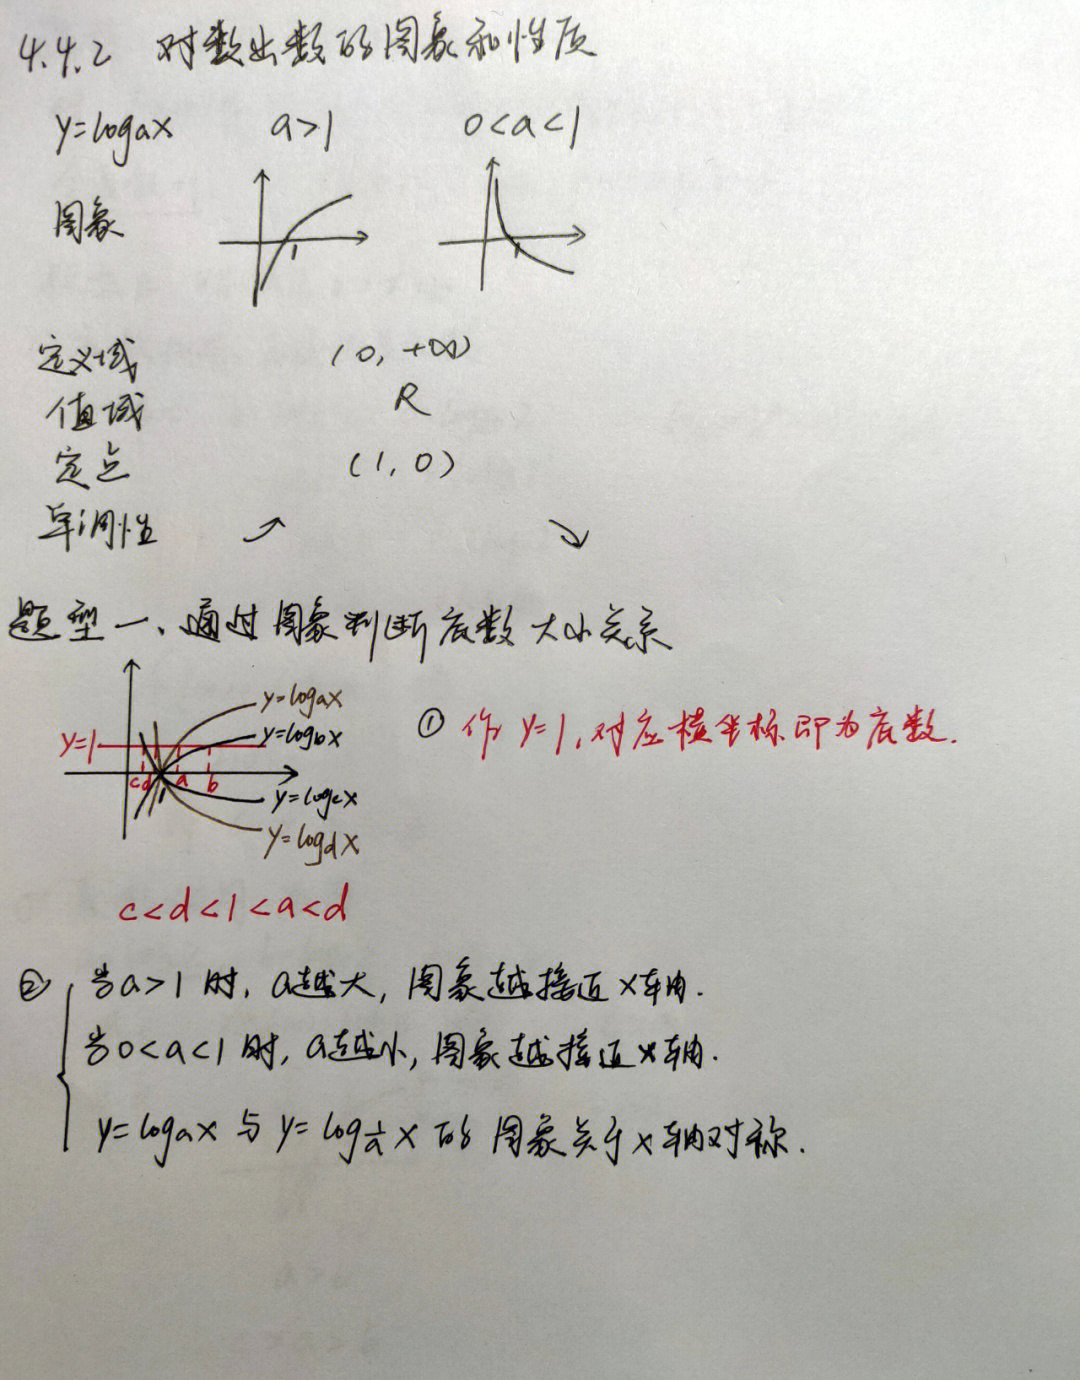 4.4.2 对数出数的图象和性质
y=logₐx a>1 0<a<1
图象
1 1
定义域 (0,+∞)
值域 R
定点 (1,0)
单调性 ↗ ↘
题型一、通过图象判断底数大小关系
y=logₐx
y=1 y=log_b x ① 作y=1,对应横坐标即为底数.
c d 1 a b
y=log_c x
y=log_d x
c<d<1<a<d
② 当a>1时,a越大,图象越接近x轴.
当0<a<1时,a越小,图象越接近x轴.
y=logₐx与y=log_{1/a} x的图象关于x轴对称.